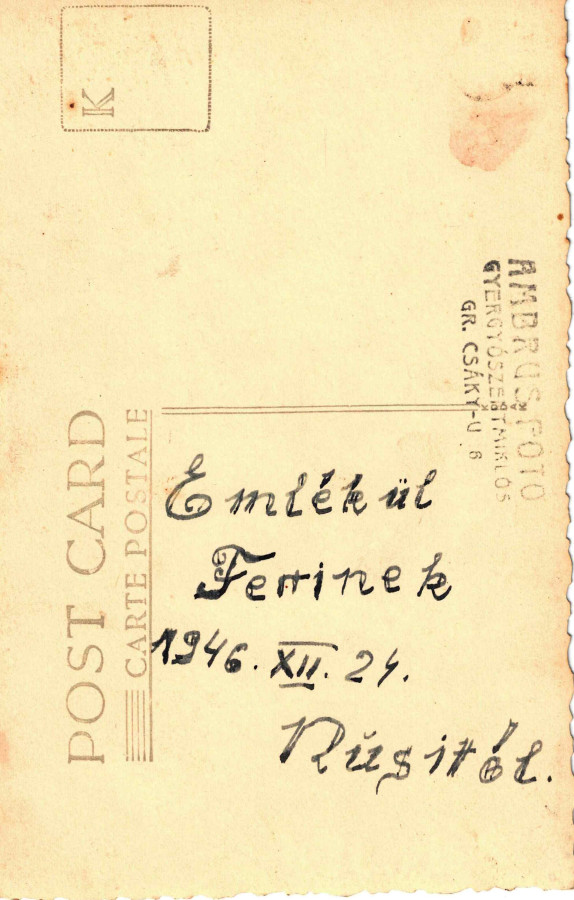 K
POST CARD
CARTE POSTALE
AMBRUS FOTO
GYERGYÓSZENTMIKLÓS
GR. CSÁKY-U 8
Emlékül
Ferrinek
1946. XII. 24.